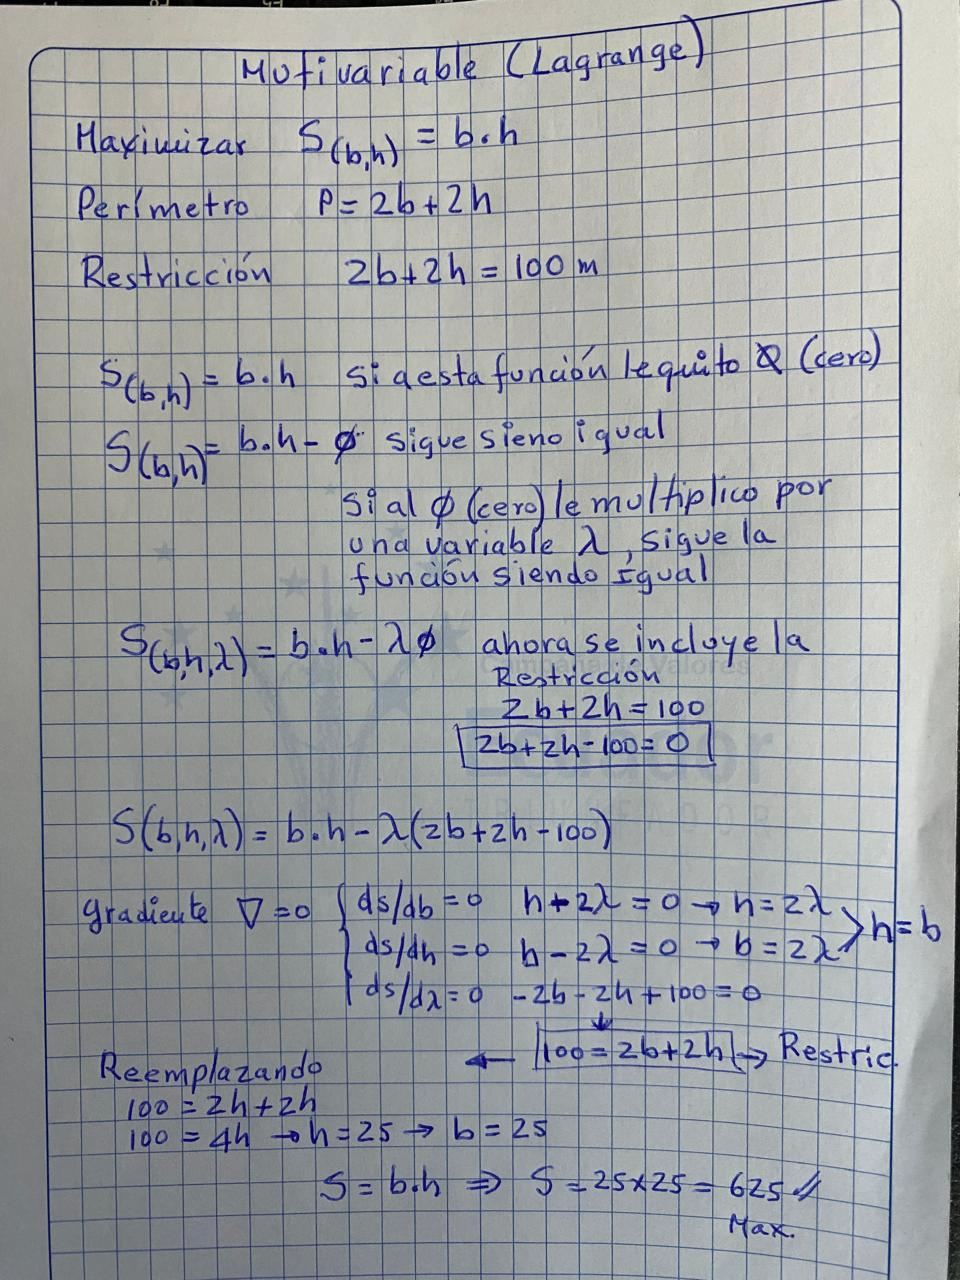 Multivariable (Lagrange)
Maximizar S(b,h) = b.h
Perímetro P=2b+2h
Restricción 2b+2h = 100 m
S(b,h) = b.h si a esta función le quito 0 (cero)
S(b,h) = b.h - ϕ sigue sieno igual
si al ϕ (cero) le multiplico por
una variable λ, sigue la
función siendo igual
S(b,h,λ) = b.h - λϕ ahora se incluye la
Campaña de Valores
Restricción
2b+2h=100
2b+2h-100=0
Ecuador
TRIUNFADOR
S(b,h,λ) = b.h - λ(2b+2h-100)
gradiente ∇=0 { ds/db = 0 h+2λ = 0 → h=2λ
ds/dh = 0 b-2λ = 0 → b=2λ > h=b
ds/dλ = 0 -2b-2h+100=0
↓
← 100=2b+2h → Restric.
Reemplazando
100 = 2h+2h
100 = 4h → h=25 → b=25
S = b.h ⇒ S = 25x25 = 625 //
Max.